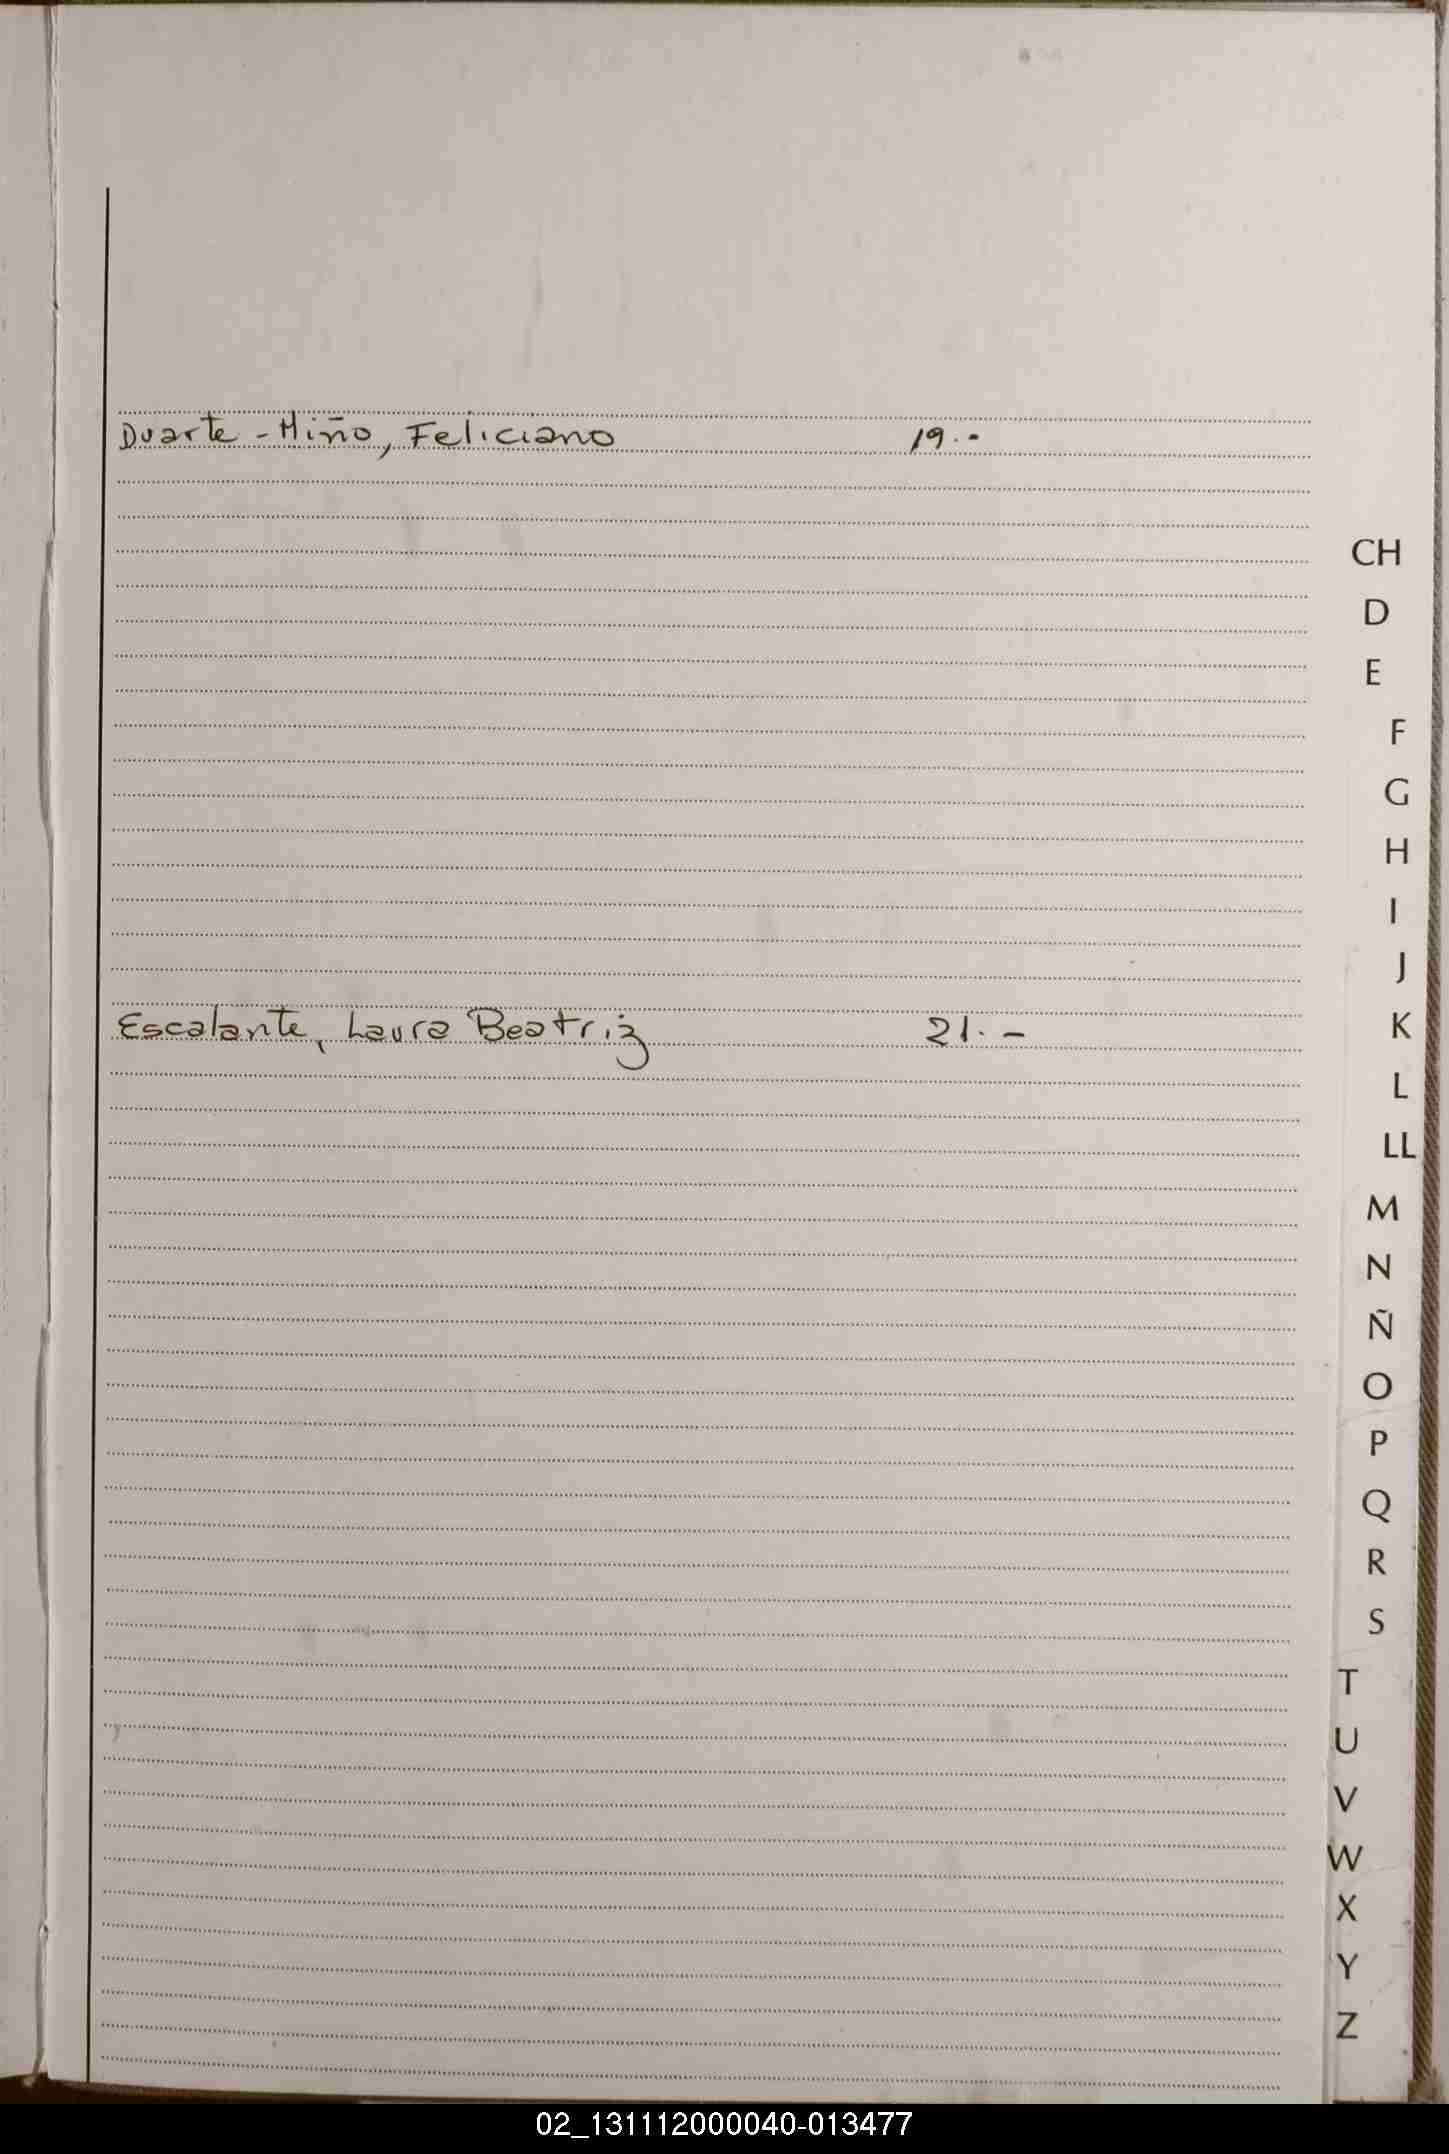 Duarte - Miño, Feliciano 19.-
CH
D
E
F
G
H
I
J
Escalante, Laura Beatriz 21.-
K
L
LL
M
N
Ñ
O
P
Q
R
S
T
U
V
W
X
Y
Z
02_131112000040-013477